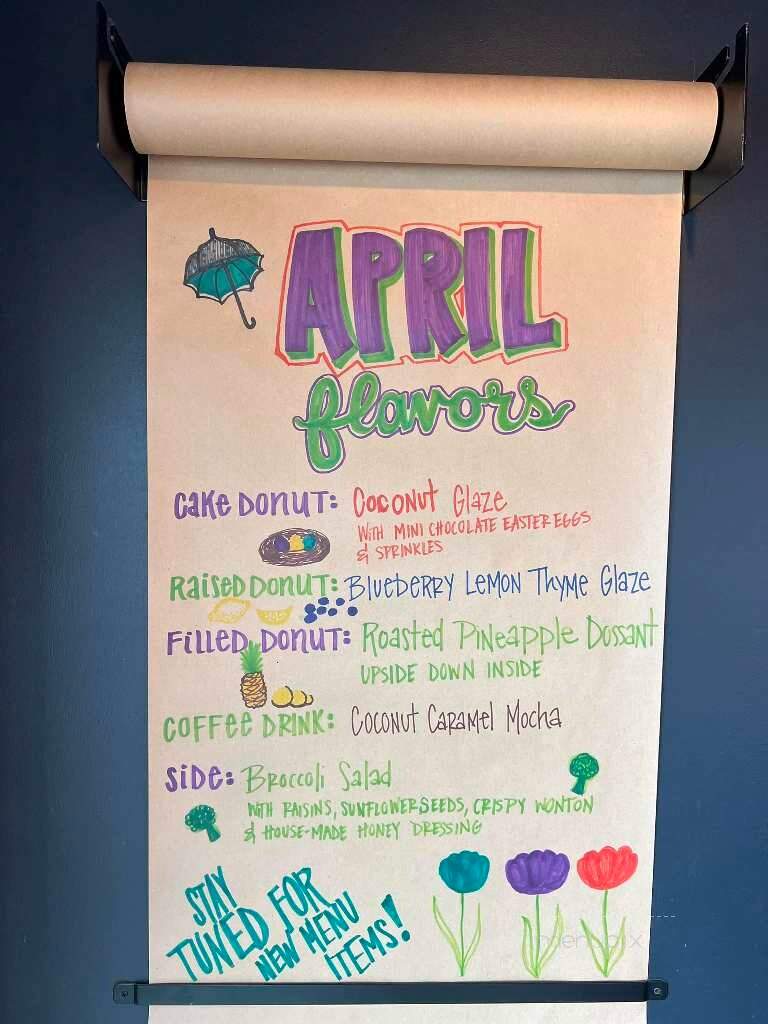 APRIL
flavors
CAKE DONUT: COCONUT GLAZE
WITH MINI CHOCOLATE EASTER EGGS
& SPRINKLES
RAISED DONUT: BLUEBERRY LEMON THYME GLAZE
FILLED DONUT: ROASTED PINEAPPLE DOSSANT
UPSIDE DOWN INSIDE
COFFEE DRINK: COCONUT CARAMEL MOCHA
SIDE: BROCCOLI SALAD
WITH RAISINS, SUNFLOWER SEEDS, CRISPY WONTON
& HOUSE-MADE HONEY DRESSING
STAY
TUNED FOR
NEW MENU
ITEMS!